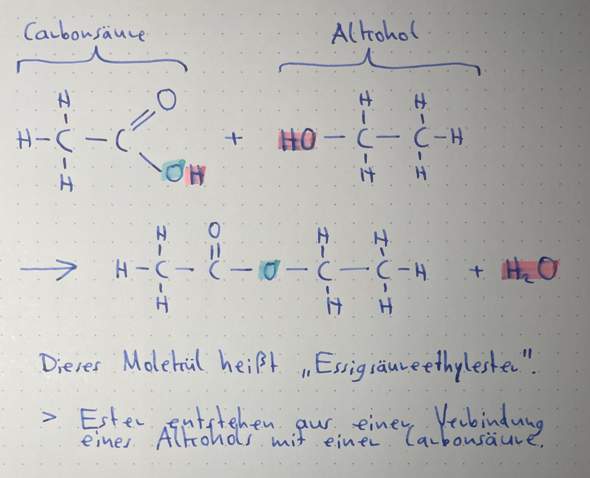 Carbonsäure Alkohol
H H H
H-C-C O + HO-C-C-H
H OH H H
O
H H H
→ H-C-C-O-C-C-H + H₂O
H H H
Dieses Molekül heißt „Essigsäureethylester".
> Ester entstehen aus einer Verbindung
eines Alkohols mit einer Carbonsäure.